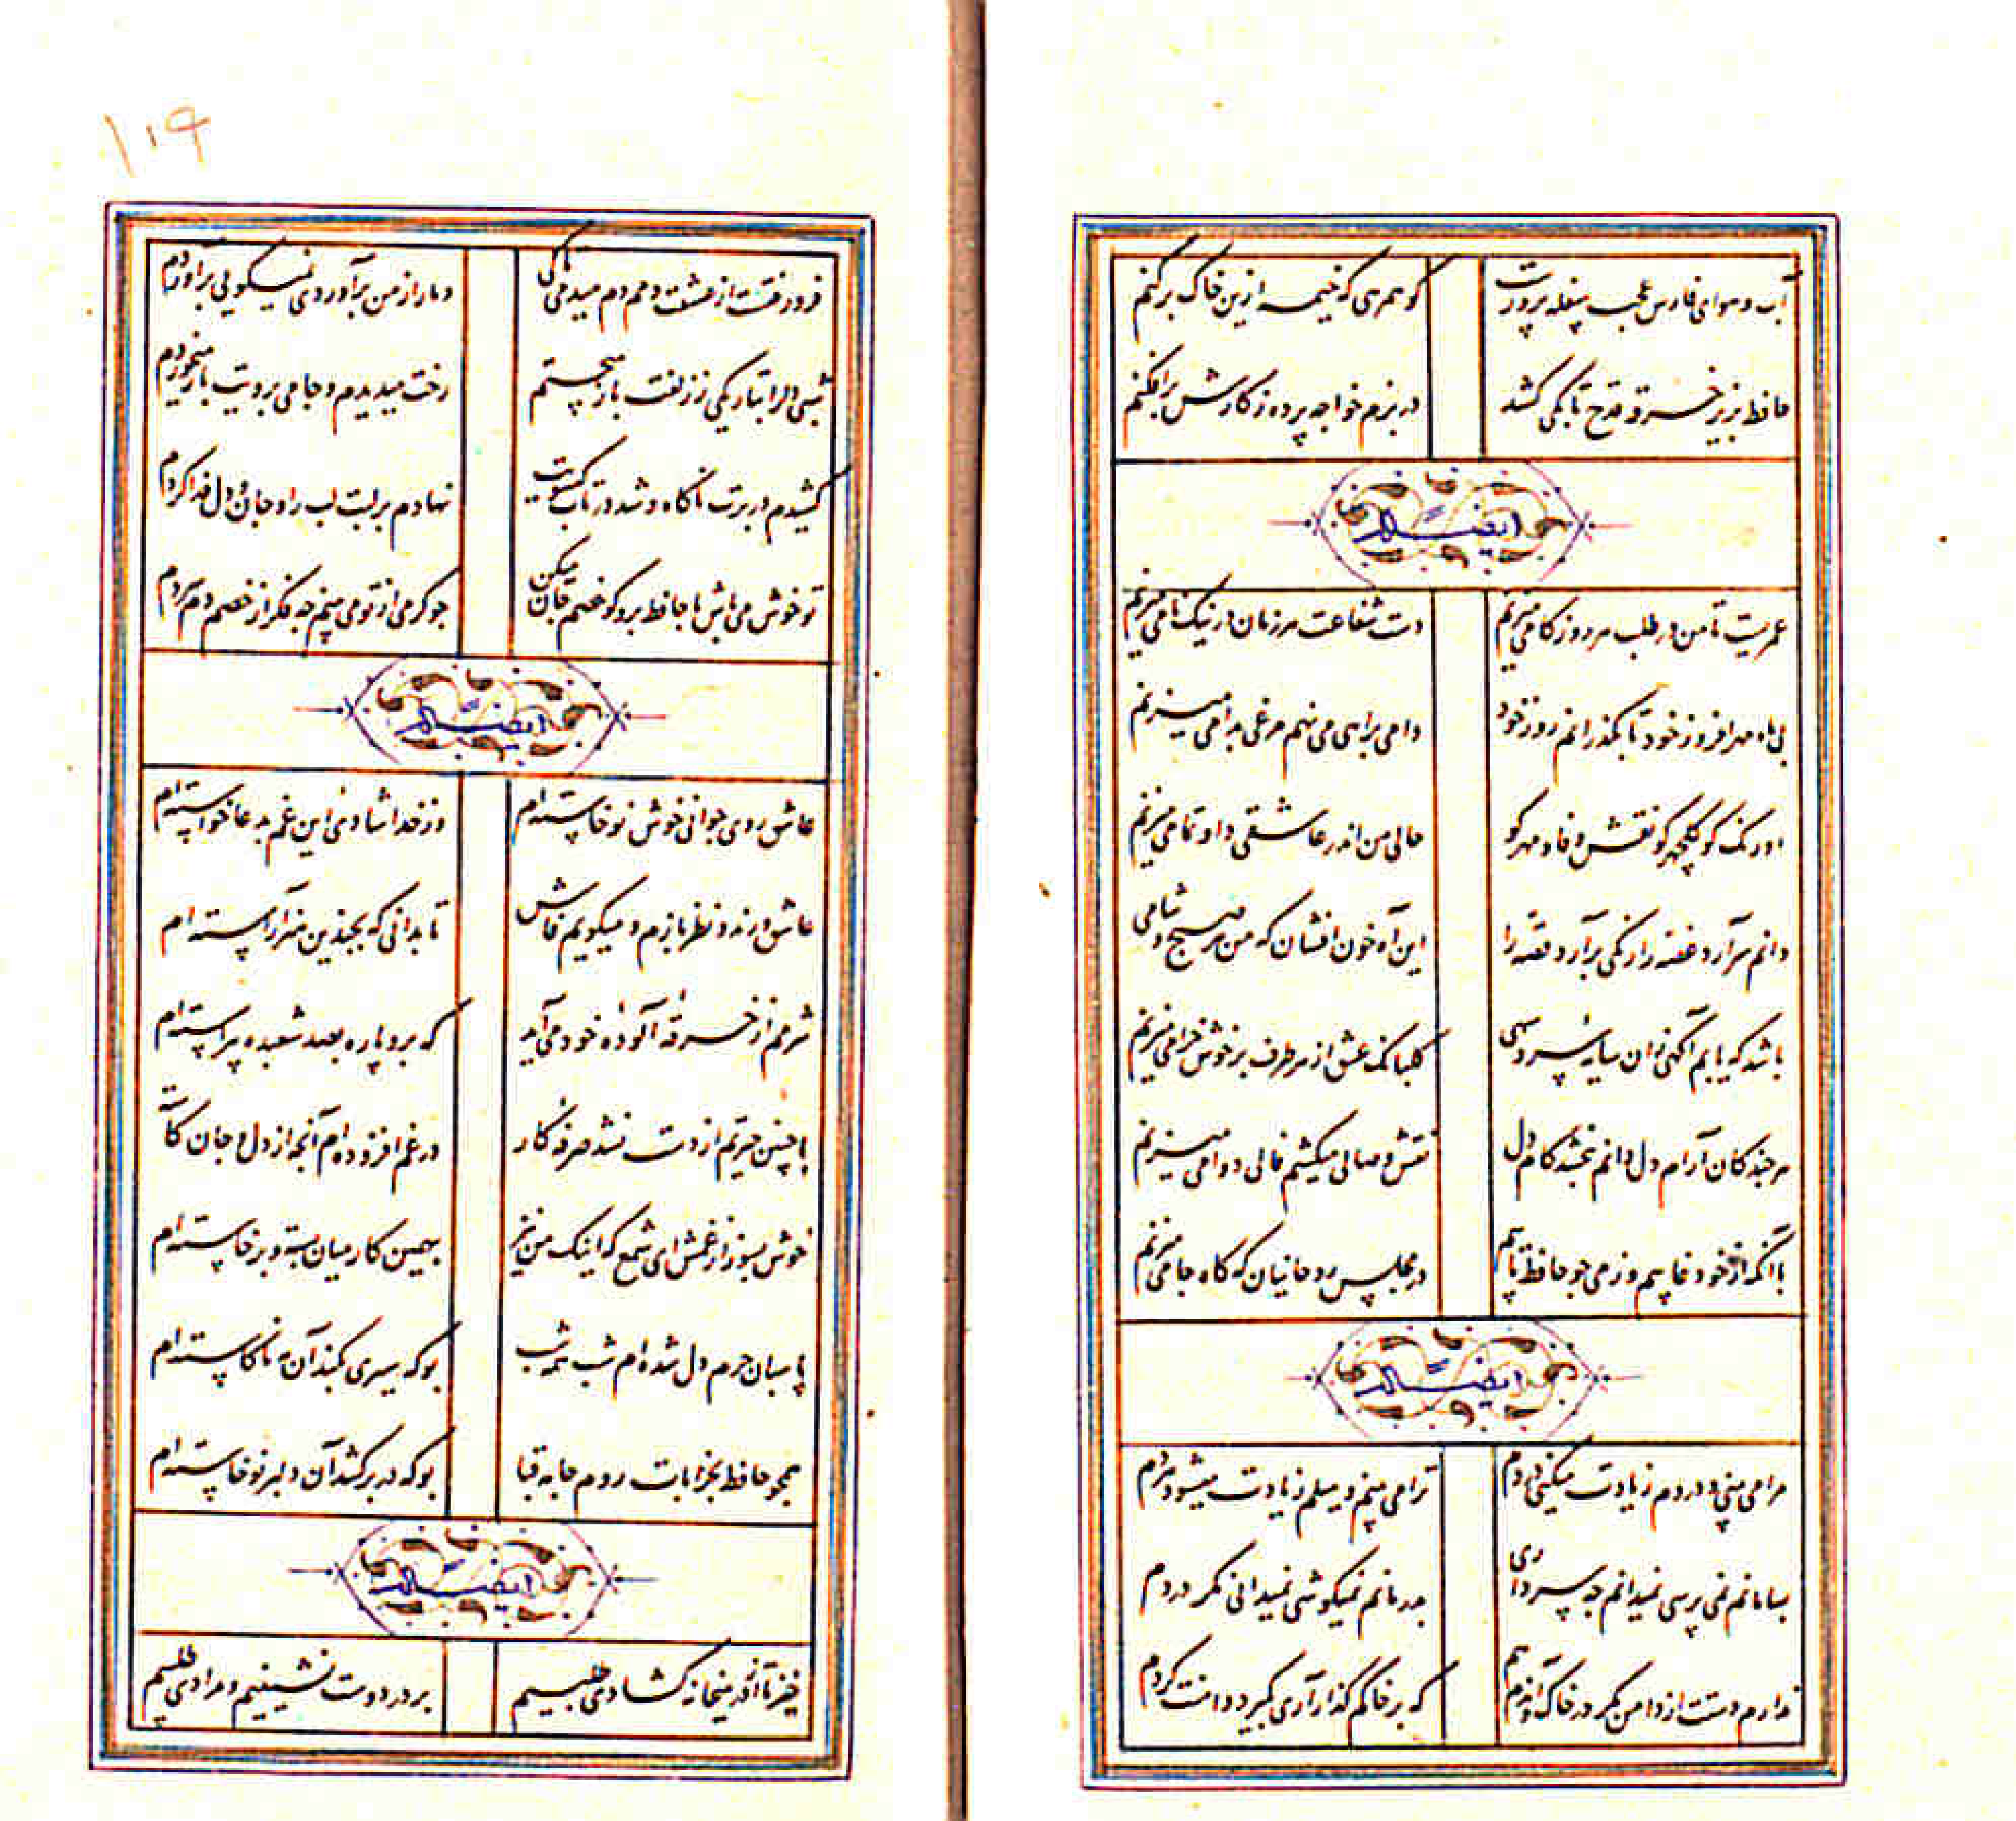 آب و هوای فارس عجب سفله پرورست
کو همرهی که خیمه ازین خاک برکنم
حافظ بزیر خرقه قدح تا بکی کشد
در بزم خواجه پرده ز کارش برافکنم
ایضا له
عمریست تا من در طلب هر روز کامی میزنم
دست شفاعت هر زمان در نیک نامی میزنم
بی ماه مهر افروز خود تا بگذرانم روز خود
دامی براهی می نهم مرغی بدامی میزنم
اورنک کو گلچهر کو نقش وفا و مهر کو
حالی من اندر عاشقی داو تمامی میزنم
دانم سرآرد غصه را رنگی برآرد قصه را
این آه خون افشان که من هر صبح و شامی
باشد که یابم آگهی زان سایه سرو سهی
کلبانک عشق از هر طرف بر خوش خرامی میزنم
هر چند کان آرام دل دانم نبخشد کام دل
نقش وصالی میکشم فالی دوامی میزنم
با آنکه از خود غایبم وز می چو حافظ تایبم
در مجلس روحانیان که کاه جامی میزنم
ایضا له
مرا می بینی و دردم زیادت میکنی دردم
ترا می بینم و میلم زیادت میشود هردم
بسامانم نمی پرسی نمیدانم چه سر داری
بدرمانم نمیکوشی نمیدانی مگر دردم
ندارم دستت از دامن مگر در خاک و آن دم هم
که بر خاکم گذار آری بگیرد دامنت گردم
۱۰۹
فرو رفت از عشقت دمم دم میدمی تا کی
دمار از من برآوردی نمیکویی برآوردم
شبی دل را بتاریکی ز زلفت باز میجستم
رخت میدیدم و جامی بر رویت باز میخوردم
کشیدم در برت ناگاه و شد در تاب گیسویت
نهادم بر لبت لب را و جان و دل فدا کردم
تو خوش می باش با حافظ برو کو خصم جان میکن
چو گرمی از تو می بینم چه فکر از خصم دم سردم
ایضا له
عاشق روی جوانی خوش نوخاسته ام
وز خدا شادی این غم بدعا خواسته ام
عاشق و رند و نظر بازم و میکویم فاش
تا بدانی که بچندین هنر آراسته ام
شرمم از خرقه آلوده خود می آید
که برو پاره بصد شعبده پیراسته ام
با چنین حیرتم از دست نشد صرفه کار
در غم افزوده ام آنچه از دل و جان کاسته
خوش بسوز از غمش ای شمع که اینک من نیز
بهمین کار میان بسته و برخاسته ام
پاسبان حرم دل شده ام شب همه شب
بوکه سیری بکند آن مه ناکاسته ام
همچو حافظ بخرابات روم جامه قبا
بوکه در بر کشد آن دلبر نوخاسته ام
ایضا له
خیز تا از در میخانه گشادی طلبیم
بر در دوست نشینیم و مرادی طلبیم